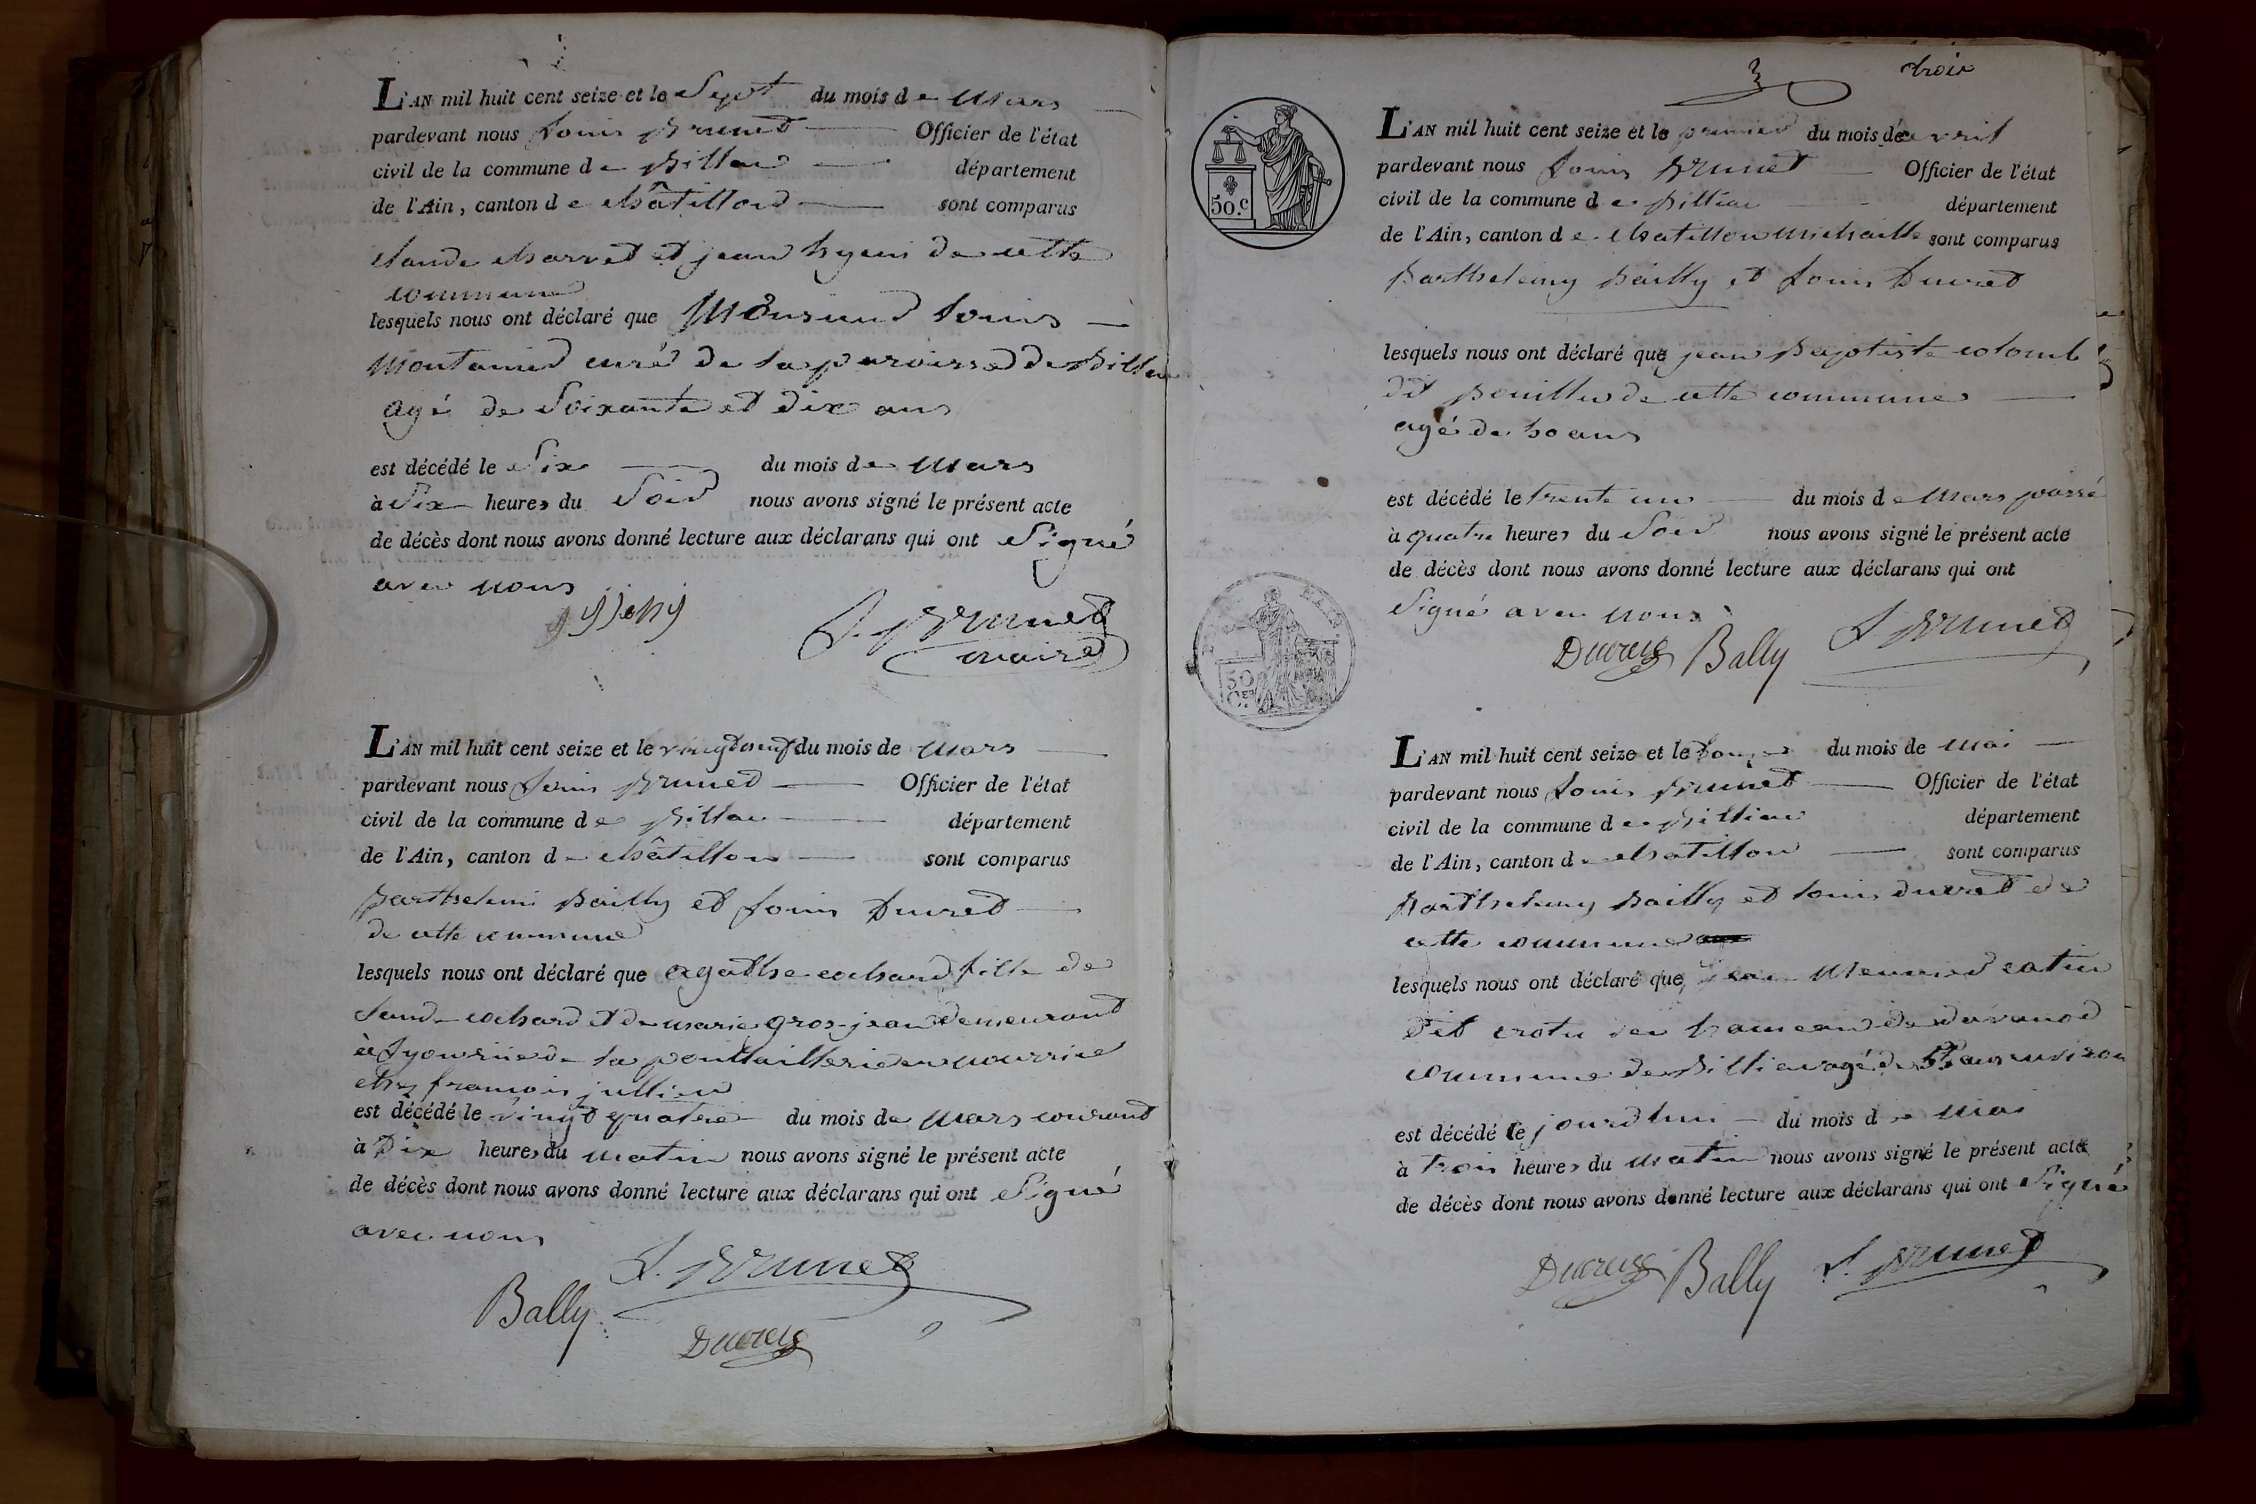 L'AN mil huit cent seize et le Sept du mois de Mars
pardevant nous Louis Brunet Officier de l'état
civil de la commune de Billiau département
de l'Ain, canton de Châtillon sont comparus
Claude Charvet et jean hyeni de cette
commune
lesquels nous ont déclaré que Monsieur Louis
Montanier curé de la paroisse de Billiau
agé de Soixante et dix ans
est décédé le Six du mois de Mars
à Six heures du Soir nous avons signé le présent acte
de décès dont nous avons donné lecture aux déclarans qui ont Signé
avec nous
L. Brunet
maire
L'AN mil huit cent seize et le vingt du mois de Mars
pardevant nous Louis Brunet Officier de l'état
civil de la commune de Billiau département
de l'Ain, canton de Châtillon sont comparus
Barthelemi Bailly et Louis Ducret
de cette commune
lesquels nous ont déclaré que agathe cochard fille de
Claude cochard et de marie gros-jean demeurant
à Lyon rue de la poullaillerie en nourrice
chez francois jullien
est décédé le vingt quatre du mois de Mars courant
à Dix heures du matin nous avons signé le présent acte
de décès dont nous avons donné lecture aux déclarans qui ont Signé
avec nous
L. Brunet
Bally
Ducret
3 trois
50.c
L'AN mil huit cent seize et le premier du mois de avril
pardevant nous Louis Brunet Officier de l'état
civil de la commune de Billiau département
de l'Ain, canton de Chatillon Michaille sont comparus
Barthelemy Bailly et Louis Ducret
lesquels nous ont déclaré que jean Baptiste colomb
dit pouillu de cette commune
agé de 50 ans
est décédé le trente un du mois de Mars passé
à quatre heures du Soir nous avons signé le présent acte
de décès dont nous avons donné lecture aux déclarans qui ont
Signé avec nous
Ducret Bally L Brunet
50
L'AN mil huit cent seize et le douze du mois de mai
pardevant nous Louis Brunet Officier de l'état
civil de la commune de Billiau département
de l'Ain, canton de Chatillon sont comparus
Barthelemy Bailly et Louis ducret de
cette commune
lesquels nous ont déclaré que jean Meunier catin
dit crotu du hameau de davanod
commune de Billiau agé de ans environ
est décédé le jourdhui du mois de Mai
à trois heures du matin nous avons signé le présent acte
de décès dont nous avons donné lecture aux déclarans qui ont Signé
Ducret Bally L. Brunet